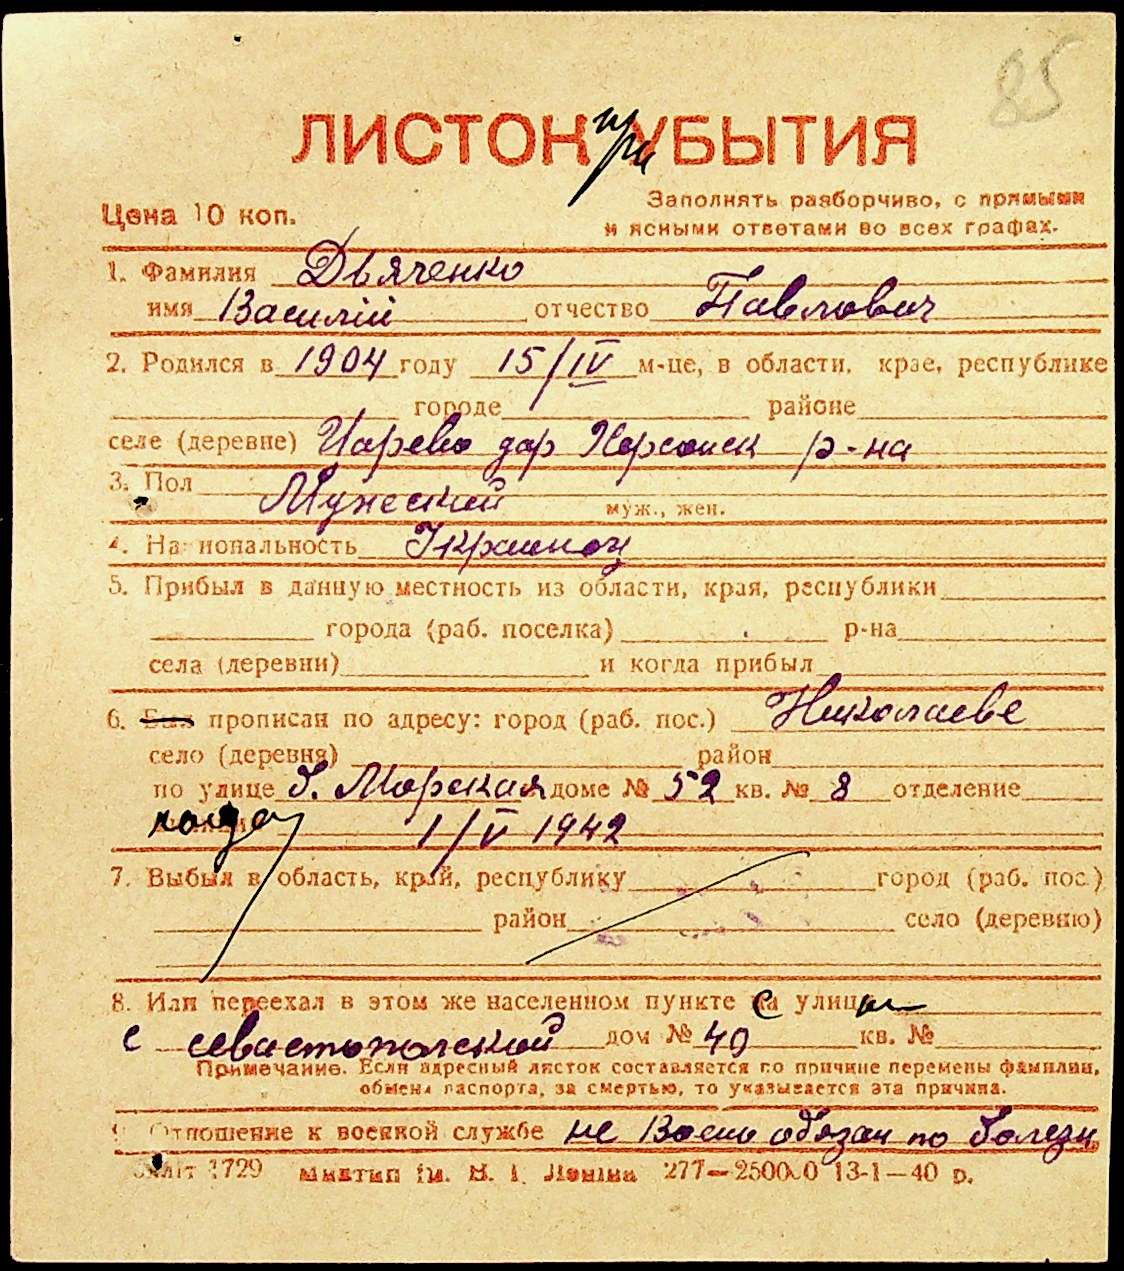 85
ЛИСТОК при УБЫТИЯ
Цена 10 коп.
Заполнять разборчиво, с прямыми
и ясными ответами во всех графах.
1. Фамилия Дьяченко
имя Василий отчество Павлович
2. Родился в 1904 году 15/IV м-це, в области, крае, республике
городе районе
селе (деревне) Царево дар Херсонск р-на
3. Пол Мужеский муж., жен.
4. Национальность Украинец
5. Прибыл в данную местность из области, края, республики
города (раб. поселка) р-на
села (деревни) и когда прибыл
6. Был прописан по адресу: город (раб. пос.) Николаеве
село (деревня) район
по улице б. Морская доме № 52 кв. № 8 отделение
когда 1/V 1942
7. Выбыл в область, край, республику город (раб. пос.)
район село (деревню)
8. Или переехал в этом же населенном пункте с улицы
с севастопольской дом № 40 кв. №
Примечание. Если адресный листок составляется по причине перемены фамилии,
обмена паспорта, за смертью, то указывается эта причина.
9. Отношение к военной службе не Воено обязан по болезн
1729 им. В. І. Леніна 277—250000 13-1—40 р.